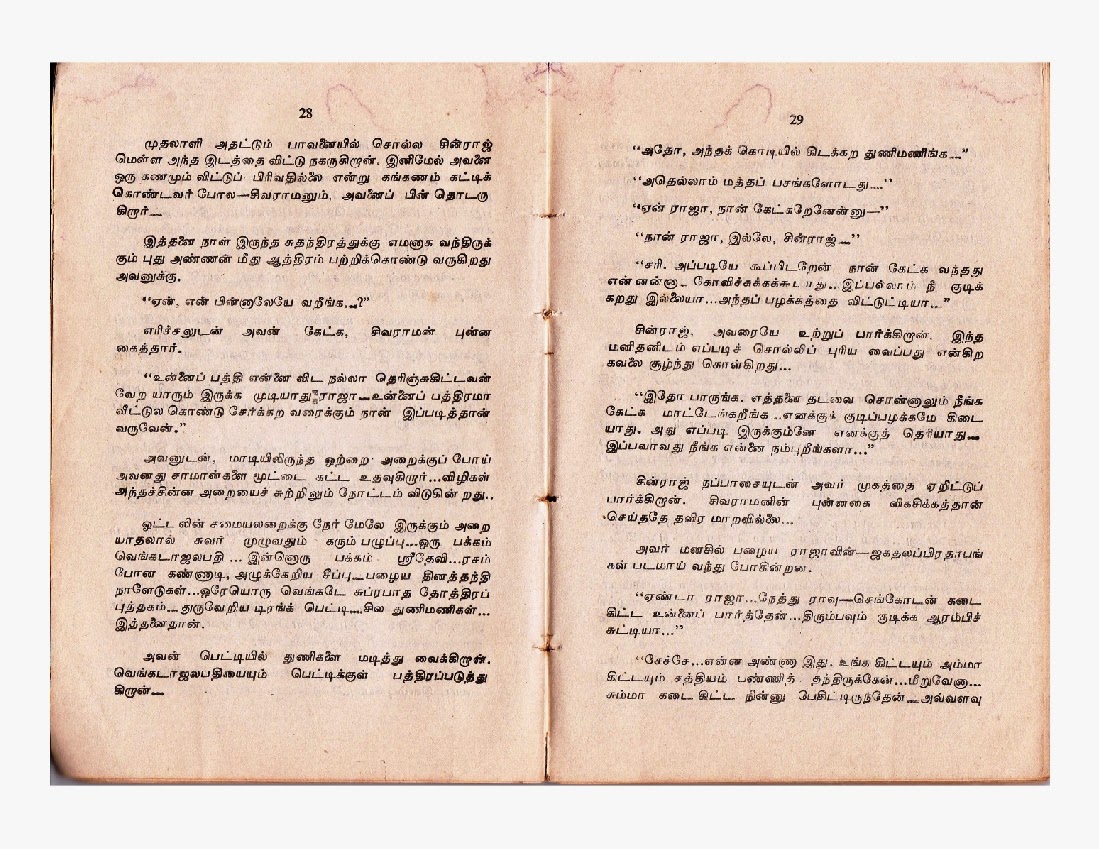 28
முதலாளி அதட்டும் பாவனையில் சொல்ல சின்ராஜ்
மெள்ள அந்த இடத்தை விட்டு நகருகிறான். இனிமேல் அவனை
ஒரு கணமும் விட்டுப் பிரிவதில்லை என்று கங்கணம் கட்டிக்
கொண்டவர் போல—சிவராமனும், அவனைப் பின் தொடரு
கிறார்....
இத்தனை நாள் இருந்த சுதந்திரத்துக்கு எமனாக வந்திருக்
கும் புது அண்ணன் மீது ஆத்திரம் பற்றிக்கொண்டு வருகிறது
அவனுக்கு.
“ஏன், என் பின்னாலேயே வறீங்க...?”
எரிச்சலுடன் அவன் கேட்க, சிவராமன் புன்ன
கைத்தார்.
“உன்னைப் பத்தி என்னை விட நல்லா தெரிஞ்சுகிட்டவன்
வேற யாரும் இருக்க முடியாது ராஜா....உன்னைப் பத்திரமா
வீட்டுல கொண்டு சேர்க்கற வரைக்கும் நான் இப்படித்தான்
வருவேன்.”
அவனுடன், மாடியிலிருந்த ஒற்றை அறைக்குப் போய்
அவனது சாமான்களை மூட்டை கட்ட உதவுகிறார்...விழிகள்
அந்தச்சின்ன அறையைச் சுற்றிலும் நோட்டம் விடுகின் றது..
ஓட்டலின் சமையலறைக்கு நேர் மேலே இருக்கும் அறை
யாதலால் சுவர் முழுவதும் கரும் பழுப்பு...ஒரு பக்கம்
வெங்கடாஜலபதி ... இன்னொரு பக்கம் ஸ்ரீதேவி...ரசம்
போன கண்ணாடி, அழுக்கேறிய சீப்பு....பழைய தினத்தந்தி
நாளேடுகள்...ஒரேயொரு வெங்கடே சுப்ரபாத தோத்திரப்
புத்தகம்.... துருவேறிய டிரங்க் பெட்டி....சில துணிமணிகள்...
இத்தனைதான்.
அவன் பெட்டியில் துணிகளை மடித்து வைக்கிறான்.
வெங்கடாஜலபதியையும் பெட்டிக்குள் பத்திரப்படுத்து
கிறான்....
29
“அதோ, அந்தக் கொடியில் கிடக்கற துணிமணிங்க....”
“அதெல்லாம் மத்தப் பசங்களோடது....”
“ஏன் ராஜா, நான் கேட்கறேனேன்னு—”
“நான் ராஜா, இல்லே, சின்ராஜ்....”
“சரி. அப்படியே கூப்பிடறேன் நான் கேட்க வந்தது
என்னன்னா.. கோவிச்சுக்கக்கூடாது.. இப்பல்லாம் நீ குடிக்
கறது இல்லையா...அந்தப் பழக்கத்தை விட்டுட்டியா...”
சின்ராஜ், அவரையே உற்றுப் பார்க்கிறான். இந்த
மனிதனிடம் எப்படிச் சொல்லிப் புரிய வைப்பது என்கிற
கவலை சூழ்ந்து கொள்கிறது...
“இதோ பாருங்க. எத்தனை தடவை சொன்னாலும் நீங்க
கேட்க மாட்டேங்கறீங்க ..எனக்குக் குடிப்பழக்கமே கிடை
யாது. அது எப்படி இருக்கும்னே எனக்குத் தெரியாது....
இப்பவாவது நீங்க என்னை நம்புறீங்களா...”
சின்ராஜ் நப்பாசையுடன் அவர் முகத்தை ஏறிட்டுப்
பார்க்கிறான். சிவராமனின் புன்னகை விகசிக்கத்தான்
செய்ததே தவிர மாறவில்லை...
அவர் மனசில் பழைய ராஜாவின்—ஜகதலப்பிரதாபங்
கள் படமாய் வந்து போகின்றன.
“ஏண்டா ராஜா...நேத்து ராவு—செங்கோடன் கடை
கிட்ட உன்னைப் பார்த்தேன்...திரும்பவும் குடிக்க ஆரம்பிச்
சுட்டியா...”
“சேச்சே...என்ன அண்ணா இது. உங்க கிட்டயும் அம்மா
கிட்டயும் சத்தியம் பண்ணித் தந்திருக்கேன்...மீறுவேனா...
சும்மா கடை கிட்ட நின்னு பேசிட்டிருந்தேன்....அவ்வளவு